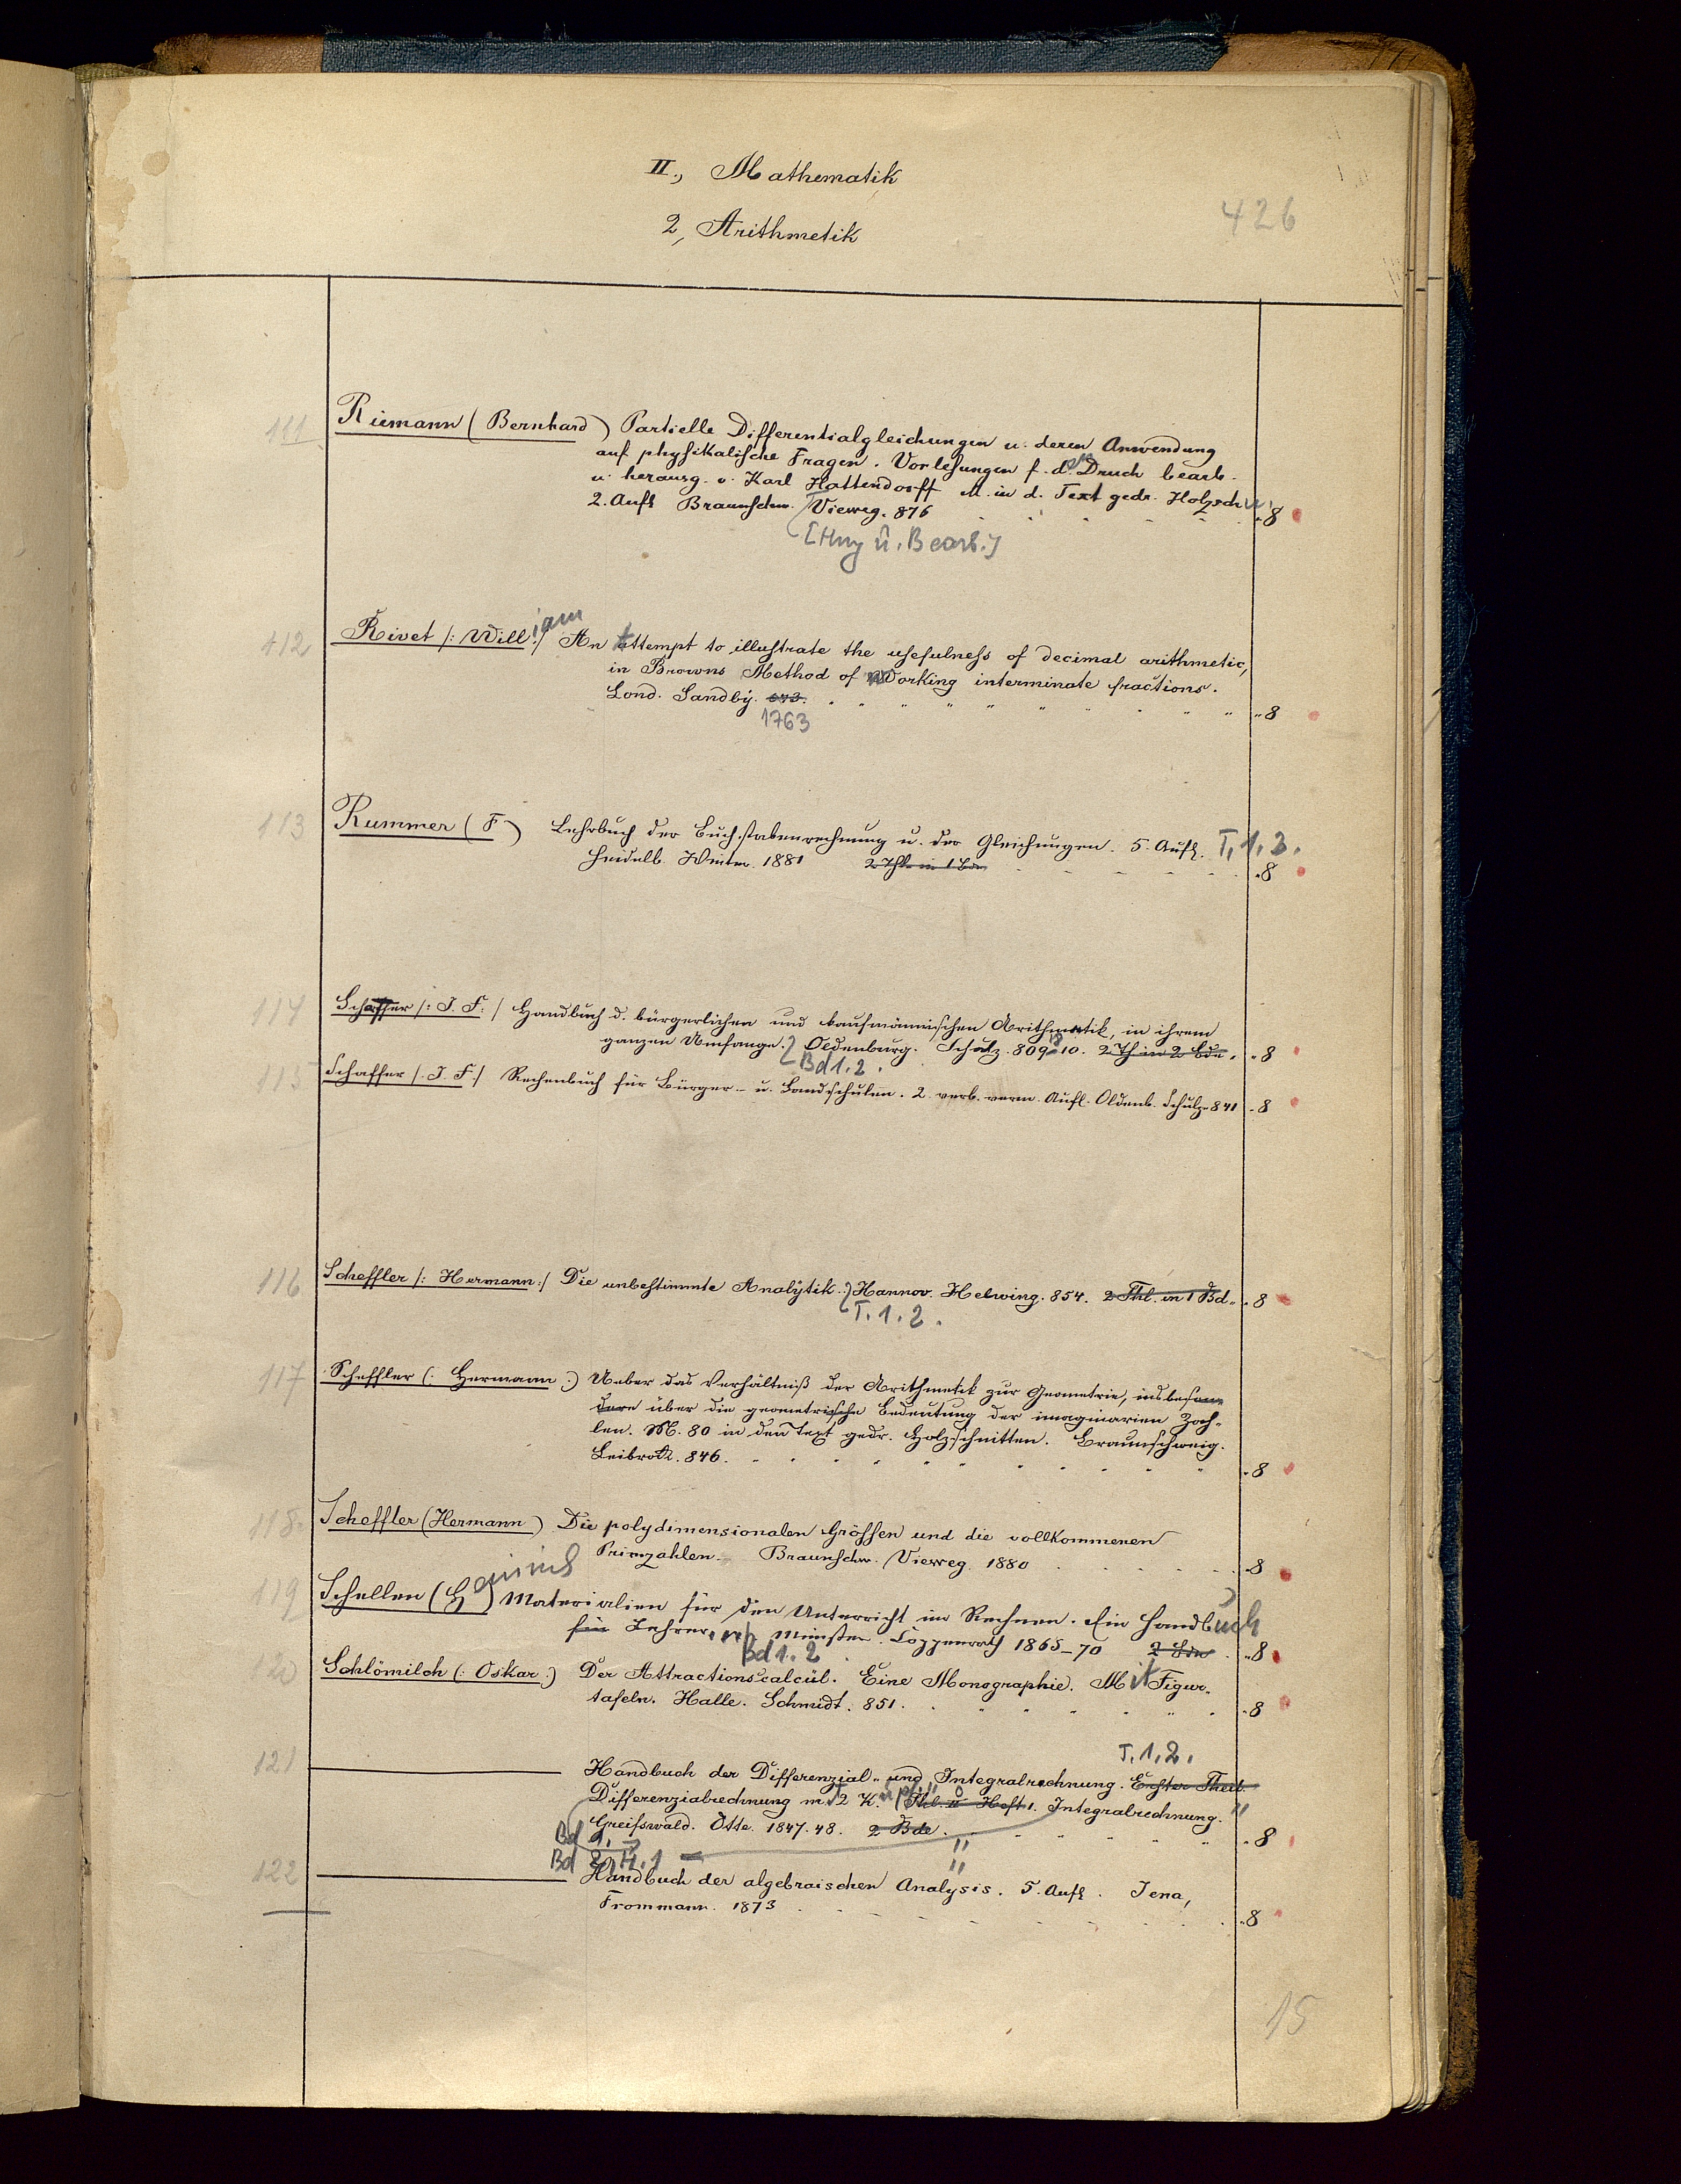 II., Mathematik
426
2, Arithmetik
111
Riemann (Bernhard) Partielle Differentialgleichungen u. deren Anwendung
auf physikalische Fragen. Vorlesungen f. den Druck bearb.
u. herausg. v. Karl Hattendorff M. in d. Text gedr. Holzschn.
2. Aufl. Braunschw. Vieweg. 876 8
[Hrsg u. Bearb.]
112
Rivet /: William :/ An attempt to illustrate the usefulness of decimal arithmetic,
in Browns Method of Working interminate fractions.
Lond. Sandby. 8
1763
113
Rummer (F.) Lehrbuch der Buchstabenrechnung u. der Gleichungen. 5. Aufl. T. 1. 2.
Heidelb. Winter. 1881 2 Thle in 1 Bde 8
114
Schaffer /: J. F. :/ Handbuch d. bürgerlichen und kaufmännischen Arithmetik, in ihrem
ganzen Umfange. Oldenburg. Schulz. 809-10. 2 Th in 2 Bde. 8
Bd 1. 2.
115
Schaffer /: J. F. :/ Rechenbuch für Bürger- u. Landschulen. 2. verb. verm. Aufl. Oldenb. Schulze 841 8
116
Scheffler /: Hermann :/ Die unbestimmte Analytik. Hannov. Helwing. 854. 2 Thl. in 1 Bd. 8
T. 1. 2.
117
Scheffler (: Hermann :) Ueber das Verhältniß der Arithmetik zur Geometrie, insbeson-
dere über die geometrische Bedeutung der imaginären Zah-
len. M. 80 in den Text gedr. Holzschnitten. Braunschweig.
Leibrock. 846. 8
118.
Scheffler (Hermann) Die polydimensionalen Grössen und die vollkommenen
Primzahlen. Braunschw. Vieweg. 1880 8
119
Schellen (Heinrich) Materialien für den Unterricht im Rechnen. Ein Handbuch
für Lehrer. Münster. Coppenrath 1865-70 2 Bde 8
Bd 1. 2
120
Schlömilch (: Oskar :) Der Attractionscalcül. Eine Monographie. Mit Figur.
tafeln. Halle. Schmidt. 851. 8
T. 1. 2.
121
Handbuch der Differenzial- und Integralrechnung. Erster Theil.
Differenzialrechnung mit 2 K. Thl. II Heft 1. Integralrechnung.
Greifswald. Otte. 1847. 48. 2 Bde. 8
Bd 1.
Bd 2, H. 1
122
Handbuch der algebraischen Analysis. 5. Aufl. Jena,
Frommann. 1873 8
15